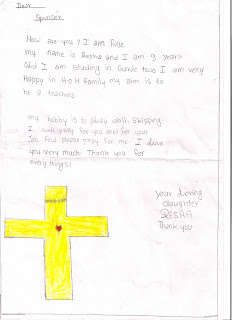 Dear
Sponser
How are you? I am fine
my name is Resha and I am 9 years
old I am studing in Garde two I am very
Happy in H.O.H. Family my aim is to
be a teacher.
my hobby is to play doll. Skipping.
I will pray for you and for your
Job. And please pray for me. I Love
you very much. Thank you for
every things!
your loving
daughter
RESHA
Thank you